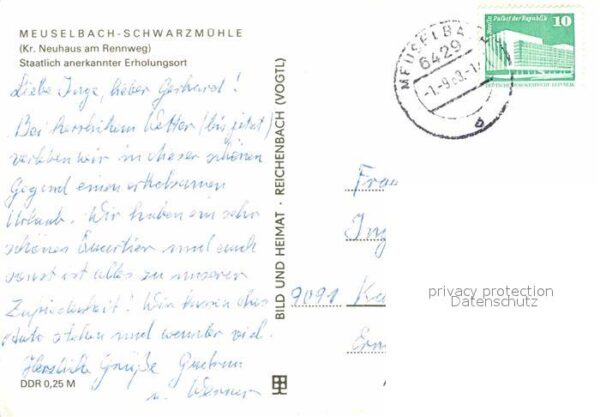 MEUSELBACH-SCHWARZMÜHLE
(Kr. Neuhaus am Rennweg)
Staatlich anerkannter Erholungsort
Liebe Inge, lieber Gerhard!
Bei herrlichem Wetter (bis jetzt)
verleben wir in dieser schönen
Gegend einen erholsamen
Urlaub. Wir haben ein sehr
schönes Quartier und auch
sonst ist alles zu unserer
Zufriedenheit! Wir lassen das
Auto stehen und wandern viel.
Herzliche Grüße Gudrun
u. Werner
DDR 0,25 M
BILD UND HEIMAT · REICHENBACH (VOGTL)
MEUSELBA
6429
Palast der Republik
10
DEUTSCHE DEMOKRATISCHE REPUBLIK
Fra
Ing
9091 Ka
privacy protection
Datenschutz